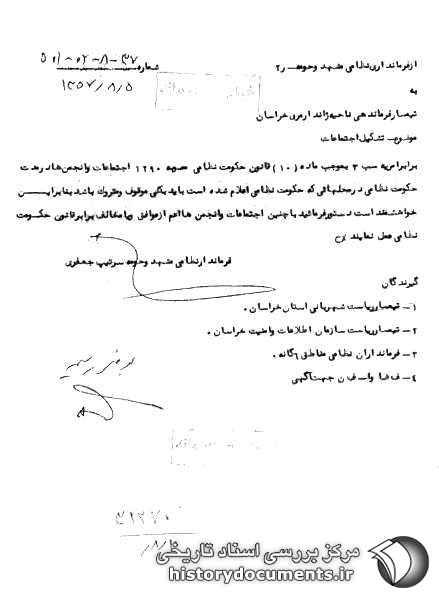 از فرمانداری نظامی مشهد و حومه ر۲
شماره ۳۷-۸-۰۲-۵۰۱
۱۳۵۷/۸/۵
به
تیمسار فرماندهی ناحیه ژاندارمری خراسان
موضوع تشکیل اجتماعات
برابر امریه سب ۳ بموجب ماده (۱۰) قانون حکومت نظامی مصوبه ۱۲۹۰ اجتماعات و انجمن ها در مدت
حکومت نظامی در محلهائی که حکومت نظامی اعلام شده است باید بکلی موقوف و متروک باشد بنابراین
خواهشمند است دستور فرمائید با چنین اجتماعات و انجمن ها اعم از موافق یا مخالف برابر قانون حکومت
نظامی عمل نمایند
فرماندار نظامی مشهد و حومه سرتیپ جعفری
گیرندگان
۱- تیمسار ریاست شهربانی استان خراسان .
۲- تیمسار ریاست سازمان اطلاعات و امنیت خراسان .
۳- فرمانداران نظامی مناطق ۶ گانه .
۴- جهت آگهی
۴۱۲۷۰
مرکز بررسی اسناد تاریخی
historydocuments.ir